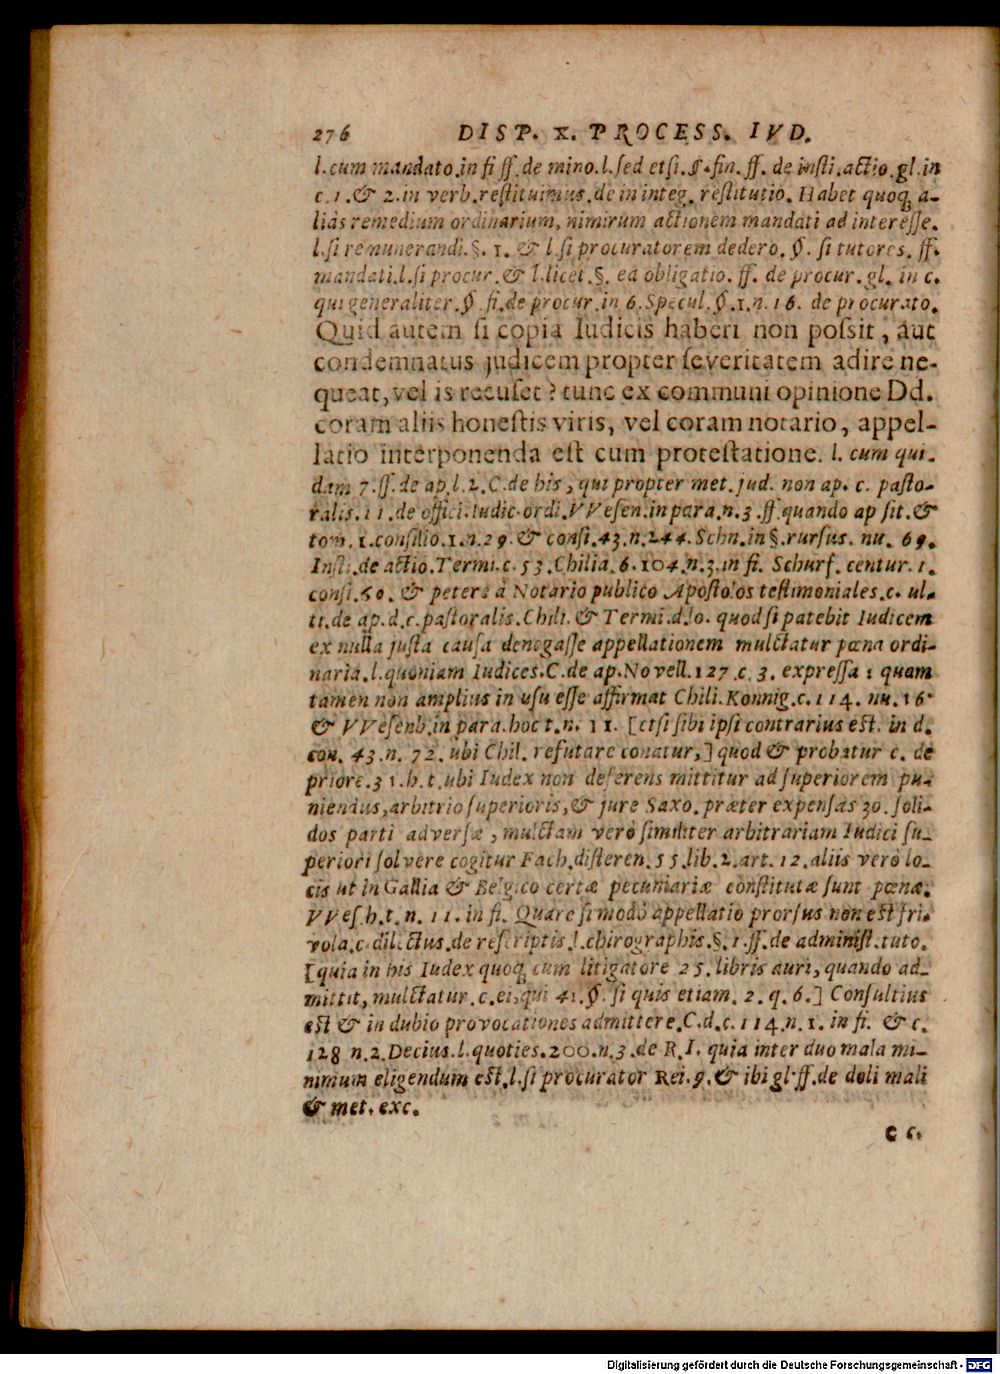 276 DISP. X. PROCESS. IVD.
l. cum mandato. in fi ff. de mino. l. sed etsi. §. fin. ff. de insti. actio. gl. in
c. 1. & 2. in verb. restituimus. de in integ. restitutio. Habet quoq; a-
lias remedium ordinarium, nimirum actionem mandati ad interesse.
l. si remunerandi. §. 1. & l. si procuratorem dedero. §. si tutores. ff.
mandati. l. si procur. & l. licet. §. ea obligatio. ff. de procur. gl. in c.
qui generaliter. §. si. de procur. in 6. Specul. §. 1. n. 16. de procurato.
Quid autem si copia Iudicis haberi non possit, aut
condemnatus judicem propter severitatem adire ne-
queat, vel is recuset? tunc ex communi opinione Dd.
coram aliis honestis viris, vel coram notario, appel-
latio interponenda est cum protestatione. l. cum qui-
dam 7. ff. de ap. l. 2. C. de his, qui propter met. jud. non ap. c. pasto-
ralis. 11. de offici. Iudic. ordi. VVesen. in para. n. 3. ff. quando ap sit. &
tom. 1. consilio. 1. n. 29. & consi. 43. n. 244. Schn. in §. rursus. nu. 69.
Insti. de actio. Termi. c. 53. Chilia. 6. 104. n. 3. in fi. Schurf. centur. 1.
consi. 50. & petere à Notario publico Apostolos testimoniales. c. ul-
ti. de ap. d. c. pastoralis. Chili. & Termi. d. lo. quod si patebit Iudicem
ex nulla justa causa denegasse appellationem mulctatur pœna ordi-
naria. l. quoniam Iudices. C. de ap. Novell. 127. c. 3. expressa: quam
tamen non amplius in usu esse affirmat Chili. Konnig. c. 114. nu. 16.
& VVesenb. in para. hoc t. n. 11. [etsi sibi ipsi contrarius est. in d.
con. 43. n. 72. ubi Chil. refutare conatur,] quod & probatur c. de
priore. 31. h. t. ubi Iudex non deferens mittitur ad superiorem pu-
niendus, arbitrio superioris, & jure Saxo. præter expensas 30. soli-
dos parti adversæ, mulctam verò similiter arbitrariam Iudici su-
periori solvere cogitur Fach. differen. 55. lib. 2. art. 12. aliis verò lo-
cis ut in Gallia & Belgico certæ pecuniariæ constitutæ sunt pœnæ.
VVes. h. t. n. 11. in fi. Quare si modò appellatio prorsus non est fri-
vola. c. dilectus. de rescriptis. l. chirographis. §. 1. ff. de administ. tuto.
[quia in his Iudex quoq; cum litigatore 25. libris auri, quando ad-
mittit, mulctatur. c. ei, qui 41. §. si quis etiam. 2. q. 6.] Consultius
est & in dubio provocationes admittere. C. d. c. 114. n. 1. in fi. & c.
128 n. 2. Decius. l. quoties. 200. n. 3. de R. I. quia inter duo mala mi-
nimum eligendum est. l. si procurator Rei. 9. & ibi gl. ff. de doli mali
& met. exc.
Digitalisierung gefördert durch die Deutsche Forschungsgemeinschaft - DFG